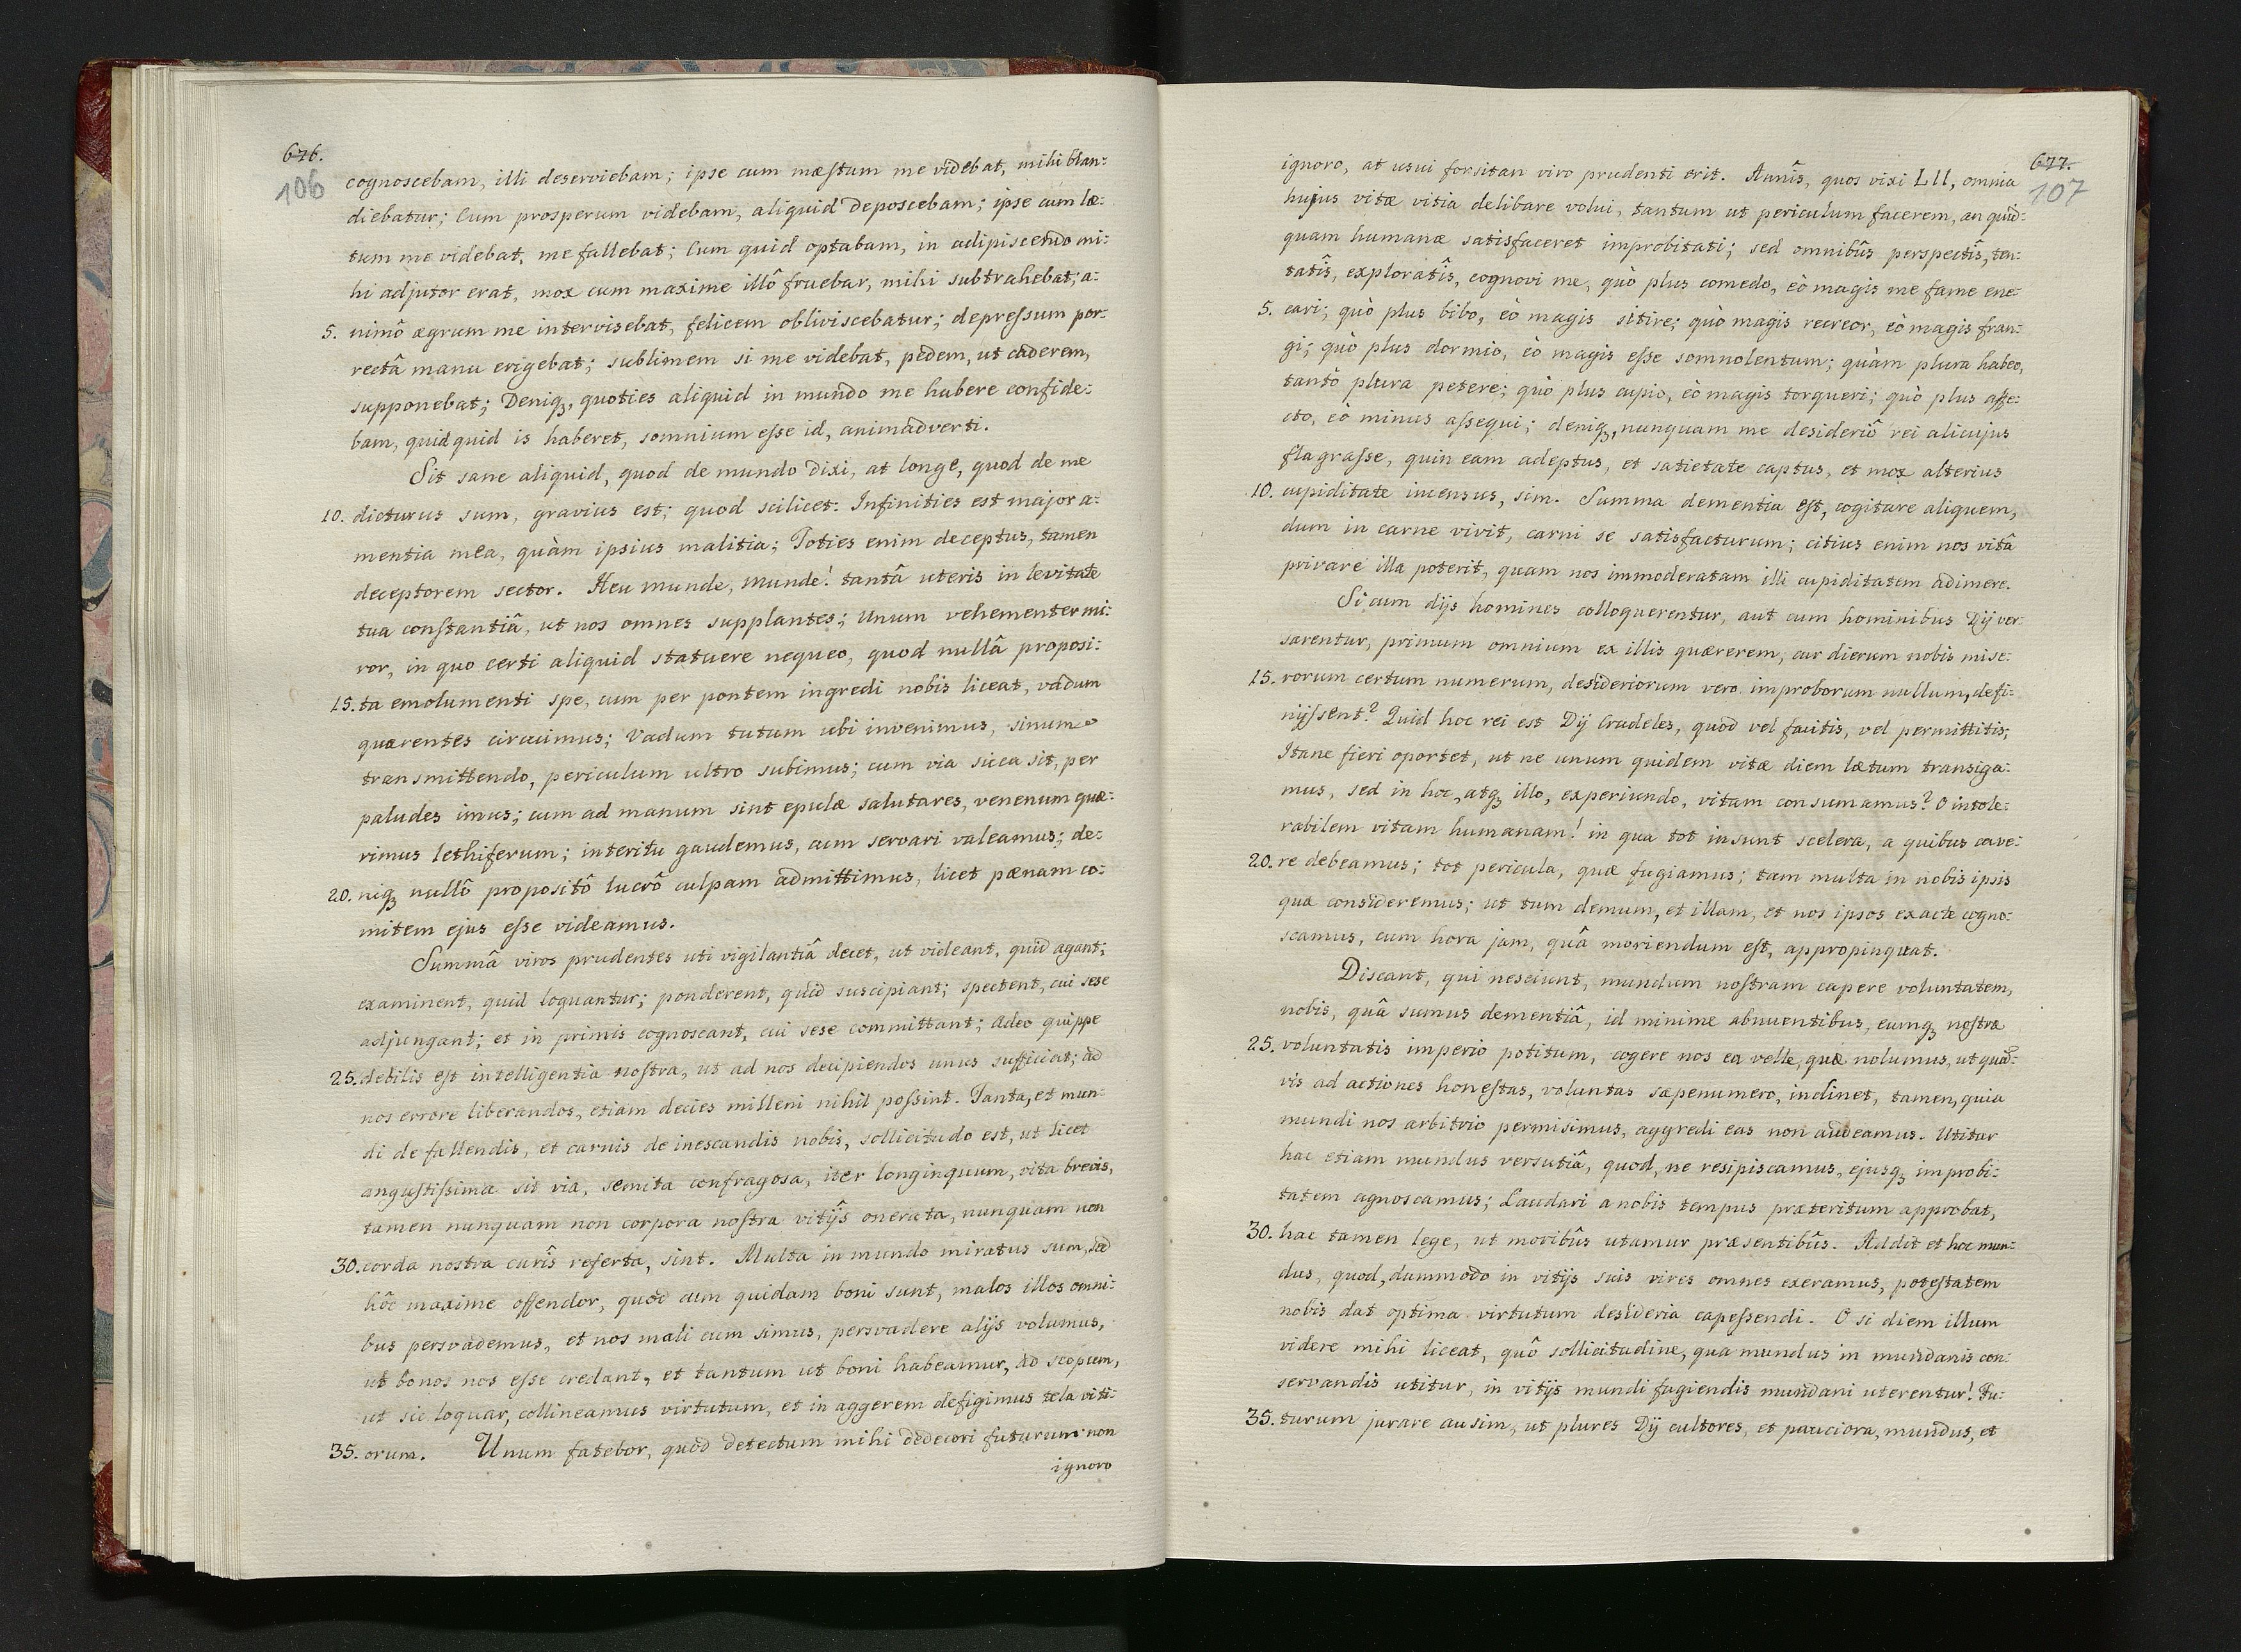 676.
106
cognoscebam, illi deserviebam; ipse cum mæstum me videbat, mihi blan-
diebatur; Cum prosperum videbam, aliquid deposcebam; ipse cum læ-
tum me videbat, me fallebat; Cum quid optabam, in adipiscendo mi-
hi adjutor erat, mox cum maxime illô fruebar, mihi subtrahebat; a-
5. nimô ægrum me intervisebat, felicem obliviscebatur; depressum por-
rectâ manu erigebat; sublimem si me videbat, pedem, ut caderem,
supponebat; Deniq, quoties aliquid in mundo me habere confide-
bam, quidquid is haberet, somnium esse id, animadverti.
Sit sane aliquid, quod de mundo dixi, at longe, quod de me
10. dicturus sum, gravius est; quod scilicet: Infinities est major a-
mentia mea, quàm ipsius malitia; Toties enim deceptus, tamen
deceptorem sector. Heu munde, munde! tantâ uteris in levitate
tua constantiâ, ut nos omnes supplantes; Unum vehementer mi-
ror, in quo certi aliquid statuere nequeo, quod nullâ proposi-
15. ta emolumenti spe, cum per pontem ingredi nobis liceat, vadum
quærentes circuimus; Vadum tutum ubi invenimus, sinum
transmittendo, periculum ultro subimus; cum via sicca sit, per
paludes imus; cum ad manum sint epulæ salutares, venenum quæ-
rimus lethiferum; interitu gaudemus, cum servari valeamus; de-
20. niq nullô propositô lucrô culpam admittimus, licet pænam co-
mitem ejus esse videamus.
Summâ viros prudentes uti vigilantiâ decet, ut videant, quid agant;
examinent, quid loquantur; ponderent, quid suscipiant; spectent, cui sese
adjungant; et in primis cognoscant, cui sese committant; Adeo quippe
25. debilis est intelligentia nostra, ut ad nos decipiendos unus sufficiat; ad
nos errore liberandos, etiam decies milleni nihil possint. Tanta, et mun-
di de fallendis, et carnis de inescandis nobis, sollicitudo est, ut licet
angustissima sit via, semita confragosa, iter longinquum, vita brevis,
tamen nunquam non corpora nostra vitijs onerata, nunquam non
30. corda nostra curîs referta, sint. Multa in mundo miratus sum, sed
hôc maxime offendor, quod cum quidam boni sunt, malos illos omni-
bus persvademus, et nos mali cum simus, persvadere alijs volumus,
ut bonos nos esse credant, et tantum ut boni habeamur, ad scopum,
ut sic loquar, collineamus virtutum, et in aggerem defigimus tela viti-
35. orum. Unum fatebor, quod detectum mihi dedecori futurum non
ignoro
677.
107
ignoro, at usui forsitan viro prudenti erit. Annîs, quos vixi LII, omnia
hujus vitæ vitia delibare volui, tantum ut periculum facerem, an quid-
quam humanæ satisfaceret improbitati; sed omnibûs perspectîs, ten-
tatîs, exploratîs, cognovi me, quò plus comedo, eò magis me fame ene-
5. cari; quò plus bibo, eò magis sitire; quò magis recreor, eò magis fran-
gi; quò plus dormio, eò magis esse somnolentum; quàm plura habeo,
tantò plura petere; quò plus cupio, eò magis torqueri; quò plus affe-
cto, eò minus assequi; deniq, nunquam me desideriô rei alicujus
flagrasse, quin eam adeptus, et satietate captus, et mox alterius
10. cupiditate incensus, sim. Summa dementia est, cogitare aliquem,
dum in carne vivit, carni se satisfacturum; citius enim nos vitâ
privare illa poterit, quam nos immoderatam illi cupiditatem adimere.
Si cum dijs homines colloquerentur, aut cum hominibus Dij ver-
sarentur, primum omnium ex illis quærerem, cur dierum nobis mise-
15. rorum certum numerum, desideriorum vero improborum nullum, defi-
nijssent? Quid hoc rei est Dij Crudeles, quod vel facitis, vel permittitis;
Itane fieri oportet, ut ne unum quidem vitæ diem lætum transiga-
mus, sed in hoc, atq illo, experiundo, vitam consumamus? O intole-
rabilem vitam humanam! in qua tot insunt scelera, a quibus cave-
20. re debeamus; tot pericula, quæ fugiamus; tam multa in nobis ipsis
quæ consideremus; ut tum demum, et illam, et nos ipsos exacte cogno-
scamus, cum hora jam, quâ moriendum est, appropinquat.
Discant, qui nesciunt, mundum nostram capere voluntatem,
nobis, quâ sumus dementiâ, id minime abnuentibus, eumq nostræ
25. voluntatis imperio potitum, cogere nos ea velle, quæ nolumus, ut quam-
vis ad actiones honestas, voluntas sæpenumero, inclinet, tamen, quia
mundi nos arbitrio permisimus, aggredi eas non audeamus. Utitur
hac etiam mundus versutiâ, quod, ne resipiscamus, ejusq improbi-
tatem agnoscamus; Laudari a nobis tempus præteritum approbat,
30. hac tamen lege, ut moribûs utamur præsentibûs. Addit et hoc mun-
dus, quod, dummodo in vitijs suis vires omnes exeramus, potestatem
nobis dat optima virtutum desideria capessendi. O si diem illum
videre mihi liceat, quô sollicitudine, qua mundus in mundanis con-
servandis utitur, in vitijs mundi fugiendis mundani uterentur! Fu-
35. turum jurare ausim, ut plures Dij cultores, et pauciora, mundus, et